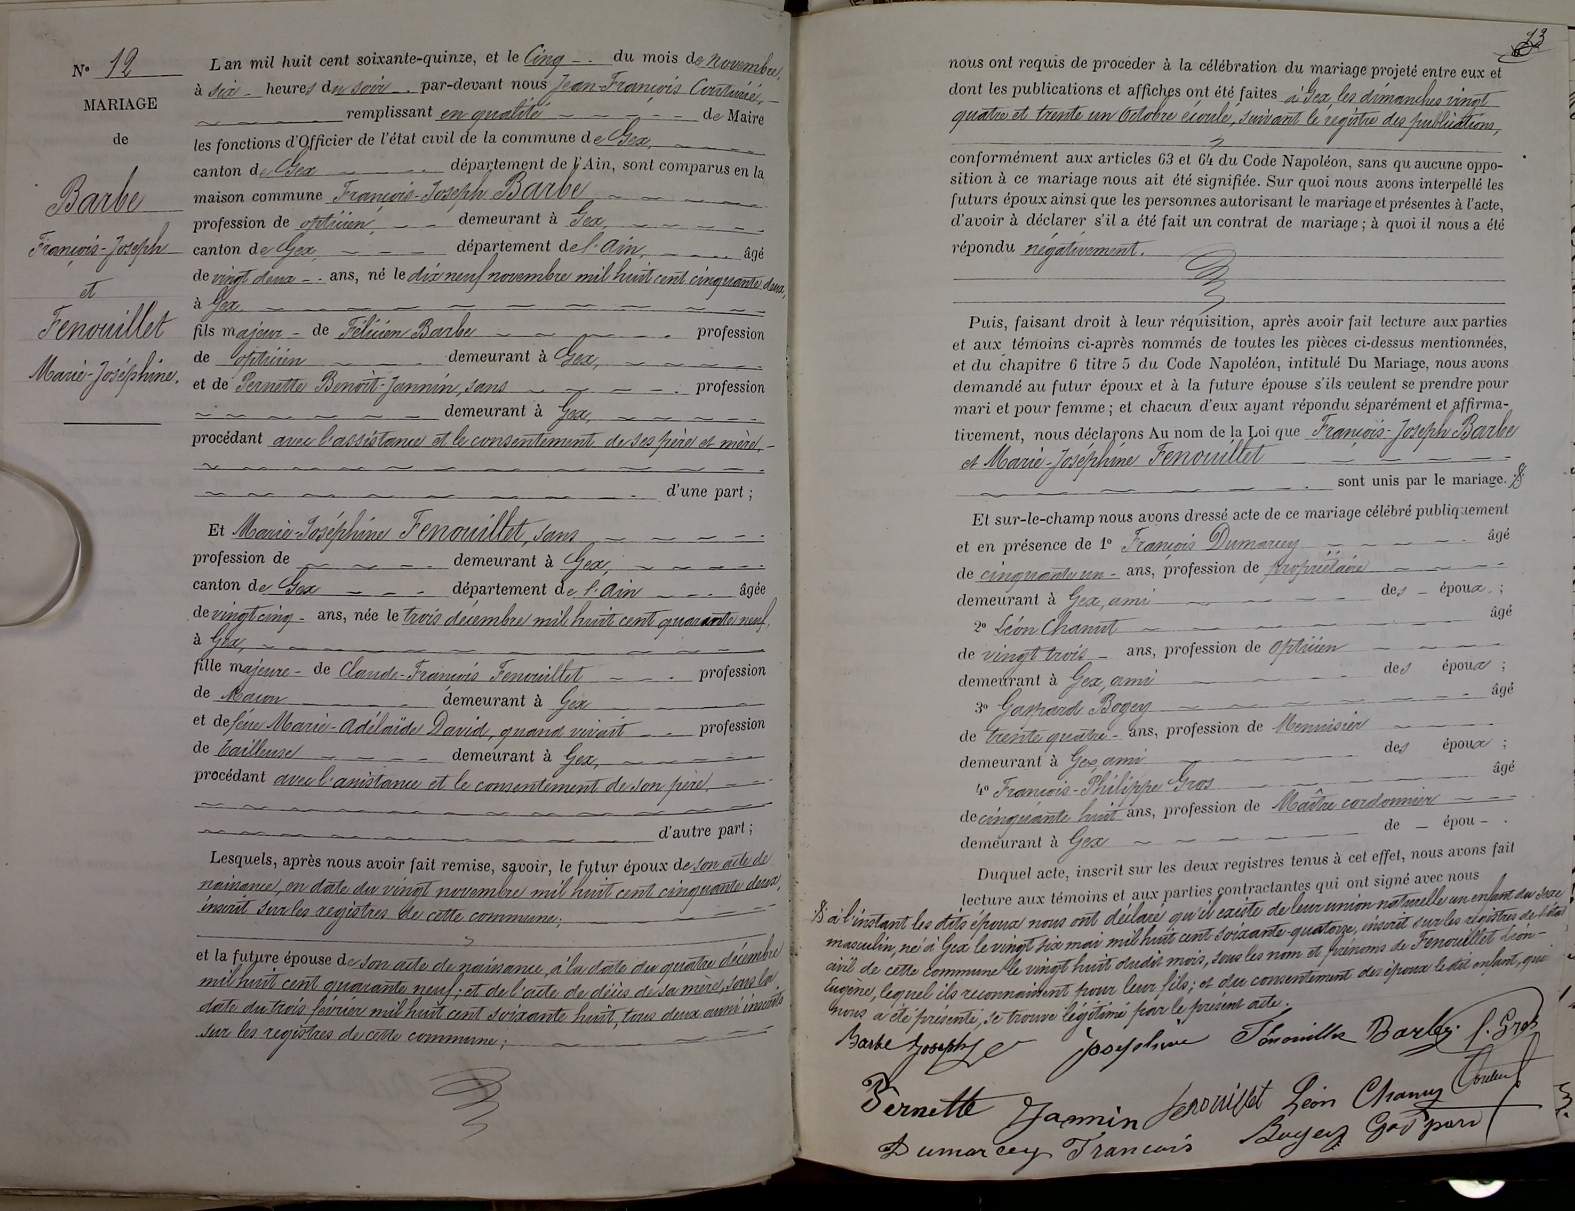 N° 12
MARIAGE
de
Barbe
François-Joseph
et
Fenouillet
Marie-Joséphine.
L'an mil huit cent soixante-quinze, et le Cinq du mois de novembre,
à six heures du soir par-devant nous Jean-François
remplissant en qualité de Maire
les fonctions d'Officier de l'état civil de la commune de Gex,
canton de Gex département de l'Ain, sont comparus en la
maison commune François-Joseph Barbe
profession de opticien, demeurant à Gex,
canton de Gex, département de l'Ain, âgé
de vingt deux ans, né le dix neuf novembre mil huit cent cinquante deux,
à Gex,
fils majeur de Félicien Barbe profession
de opticien demeurant à Gex,
et de Pernette Benoit-Jannin, sans profession
demeurant à Gex,
procédant avec l'assistance et le consentement de ses père et mère,
d'une part ;
Et Marie-Joséphine Fenouillet, sans
profession de demeurant à Gex,
canton de Gex département de l'Ain âgée
de vingt cinq ans, née le trois décembre mil huit cent quarante neuf,
à Gex,
fille majeure de Claude-François Fenouillet profession
de Maçon demeurant à Gex
et de feue Marie-Adélaïde David, quand vivait profession
de tailleuse demeurant à Gex,
procédant avec l'assistance et le consentement de son père,
d'autre part ;
Lesquels, après nous avoir fait remise, savoir, le futur époux de son acte de
naissance, en date du vingt novembre mil huit cent cinquante deux,
inscrit sur les registres de cette commune;
et la future épouse de son acte de naissance, à la date du quatre décembre
mil huit cent quarante neuf; et de l'acte de décès de sa mère, sous la
date du trois février mil huit cent soixante huit, tous deux aussi inscrits
sur les registres de cette commune;
13
nous ont requis de procéder à la célébration du mariage projeté entre eux et
dont les publications et affiches ont été faites à Gex, les dimanches vingt
quatre et trente un Octobre écoulé, suivant le registre des publications,
conformément aux articles 63 et 64 du Code Napoléon, sans qu'aucune oppo-
sition à ce mariage nous ait été signifiée. Sur quoi nous avons interpellé les
futurs époux ainsi que les personnes autorisant le mariage et présentes à l'acte,
d'avoir à déclarer s'il a été fait un contrat de mariage ; à quoi il nous a été
répondu négativement.
Puis, faisant droit à leur réquisition, après avoir fait lecture aux parties
et aux témoins ci-après nommés de toutes les pièces ci-dessus mentionnées,
et du chapitre 6 titre 5 du Code Napoléon, intitulé Du Mariage, nous avons
demandé au futur époux et à la future épouse s'ils veulent se prendre pour
mari et pour femme ; et chacun d'eux ayant répondu séparément et affirma-
tivement, nous déclarons Au nom de la Loi que François-Joseph Barbe
et Marie-Joséphine Fenouillet
sont unis par le mariage.
Et sur-le-champ nous avons dressé acte de ce mariage célébré publiquement
et en présence de 1° François Dumarcey âgé
de cinquante un ans, profession de propriétaire
demeurant à Gex, ami des époux ;
2° Léon Chanut âgé
de vingt trois ans, profession de opticien
demeurant à Gex, ami des époux ;
3° Gaspard Bogey âgé
de trente quatre ans, profession de Menuisier
demeurant à Gex, ami des époux ;
4° François-Philippe Gros âgé
de cinquante huit ans, profession de Maître cordonnier
demeurant à Gex de épou
Duquel acte, inscrit sur les deux registres tenus à cet effet, nous avons fait
lecture aux témoins et aux parties contractantes qui ont signé avec nous
à l'instant les dits époux nous ont déclaré qu'il existe de leur union naturelle un enfant du sexe
masculin, né à Gex le vingt six mai mil huit cent soixante-quatorze, inscrit sur les registres de l'état
civil de cette commune le vingt huit dudit mois, sous les nom et prénoms de Fenouillet Léon-
Eugène, lequel ils reconnaissent pour leur fils; et du consentement des époux le dit enfant, qui
nous a été présenté, se trouve légitimé par le présent acte.
Barbe Joseph Joséphine Fenouillet Barbe f. Gros
Pernette Jannin Fenouillet Léon Chanut
Dumarcey François Bogey Gaspard